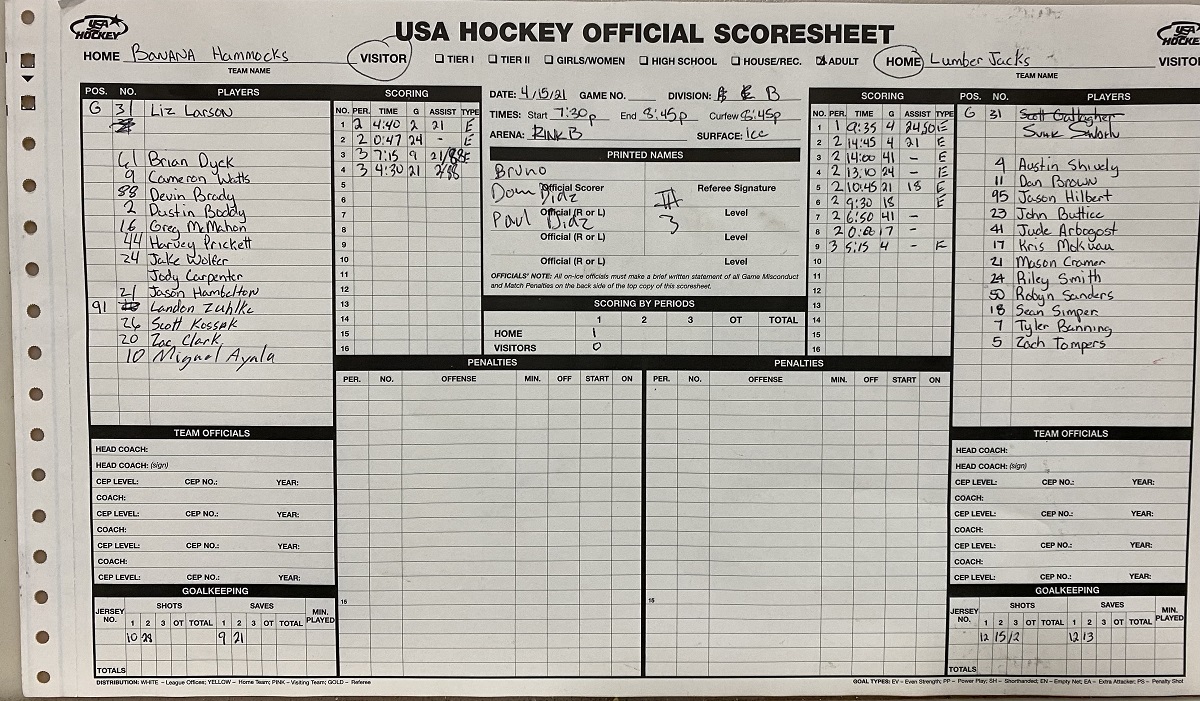 USA HOCKEY
USA HOCKEY OFFICIAL SCORESHEET
USA HOCKEY
HOME BANANA Hammocks
VISITOR
TIER I TIER II GIRLS/WOMEN HIGH SCHOOL HOUSE/REC. ADULT
HOME Lumber Jacks
VISITO
TEAM NAME
TEAM NAME
POS. NO. PLAYERS
G 31 Liz Larson
61 Brian Dyck
9 Cameron Watts
88 Devin Brady
2 Dustin Boddy
16 Greg McMahon
44 Harvey Prickett
24 Jake Wolfer
Jody Carpenter
21 Jason Hambelton
91 Landon Zuhlke
26 Scott Kossak
20 Zac Clark
10 Miguel Ayala
SCORING
NO. PER. TIME G ASSIST TYPE
1 2 4:40 2 21 E
2 2 0:47 24 - E
3 3 7:15 9 21/88 E
4 3 4:30 21 2/88
5
6
7
8
9
10
11
12
13
14
15
16
DATE: 4/15/21 GAME NO. DIVISION: B
TIMES: Start 7:30p End 8:45p Curfew 8:45p
ARENA: RINK B SURFACE: Ice
PRINTED NAMES
Bruno
Official Scorer Referee Signature
Dom Diaz III
Official (R or L) Level
Paul Diaz 3
Official (R or L) Level
Official (R or L) Level
OFFICIALS' NOTE: All on-ice officials must make a brief written statement of all Game Misconduct
and Match Penalties on the back side of the top copy of this scoresheet.
SCORING BY PERIODS
1 2 3 OT TOTAL
HOME 1
VISITORS 0
SCORING
NO. PER. TIME G ASSIST TYPE
1 1 9:35 4 24 50 E
2 2 14:45 4 21 E
3 2 14:00 41 - E
4 2 13:10 24 - E
5 2 10:45 21 18 E
6 2 9:30 18 E
7 2 6:50 41 -
8 2 0: 17 -
9 3 5:15 4 - E
10
11
12
13
14
15
16
POS. NO. PLAYERS
G 31 Scott Gallagher
4 Austin Shively
11 Dan Brown
95 Jason Hilbert
23 John Buttice
41 Jude Arbogost
17 Kris Mokuau
21 Mason Cramer
24 Riley Smith
50 Robyn Sanders
18 Sean Simper
7 Tyler Banning
5 Zach Tompers
PENALTIES
PER. NO. OFFENSE MIN. OFF START ON
15
PENALTIES
PER. NO. OFFENSE MIN. OFF START ON
15
TEAM OFFICIALS
HEAD COACH:
HEAD COACH: (sign)
CEP LEVEL: CEP NO.: YEAR:
COACH:
CEP LEVEL: CEP NO.: YEAR:
COACH:
CEP LEVEL: CEP NO.: YEAR:
COACH:
CEP LEVEL: CEP NO.: YEAR:
GOALKEEPING
JERSEY NO. SHOTS SAVES MIN. PLAYED
1 2 3 OT TOTAL 1 2 3 OT TOTAL
10 28 9 21
TOTALS
TEAM OFFICIALS
HEAD COACH:
HEAD COACH: (sign)
CEP LEVEL: CEP NO.: YEAR:
COACH:
CEP LEVEL: CEP NO.: YEAR:
COACH:
CEP LEVEL: CEP NO.: YEAR:
COACH:
CEP LEVEL: CEP NO.: YEAR:
GOALKEEPING
JERSEY NO. SHOTS SAVES MIN. PLAYED
1 2 3 OT TOTAL 1 2 3 OT TOTAL
12 15 12 12 13
TOTALS
DISTRIBUTION: WHITE – League Offices; YELLOW – Home Team; PINK – Visiting Team; GOLD – Referee
GOAL TYPES: EV – Even Strength; PP – Power Play; SH – Shorthanded; EN – Empty Net; EA – Extra Attacker; PS – Penalty Shot